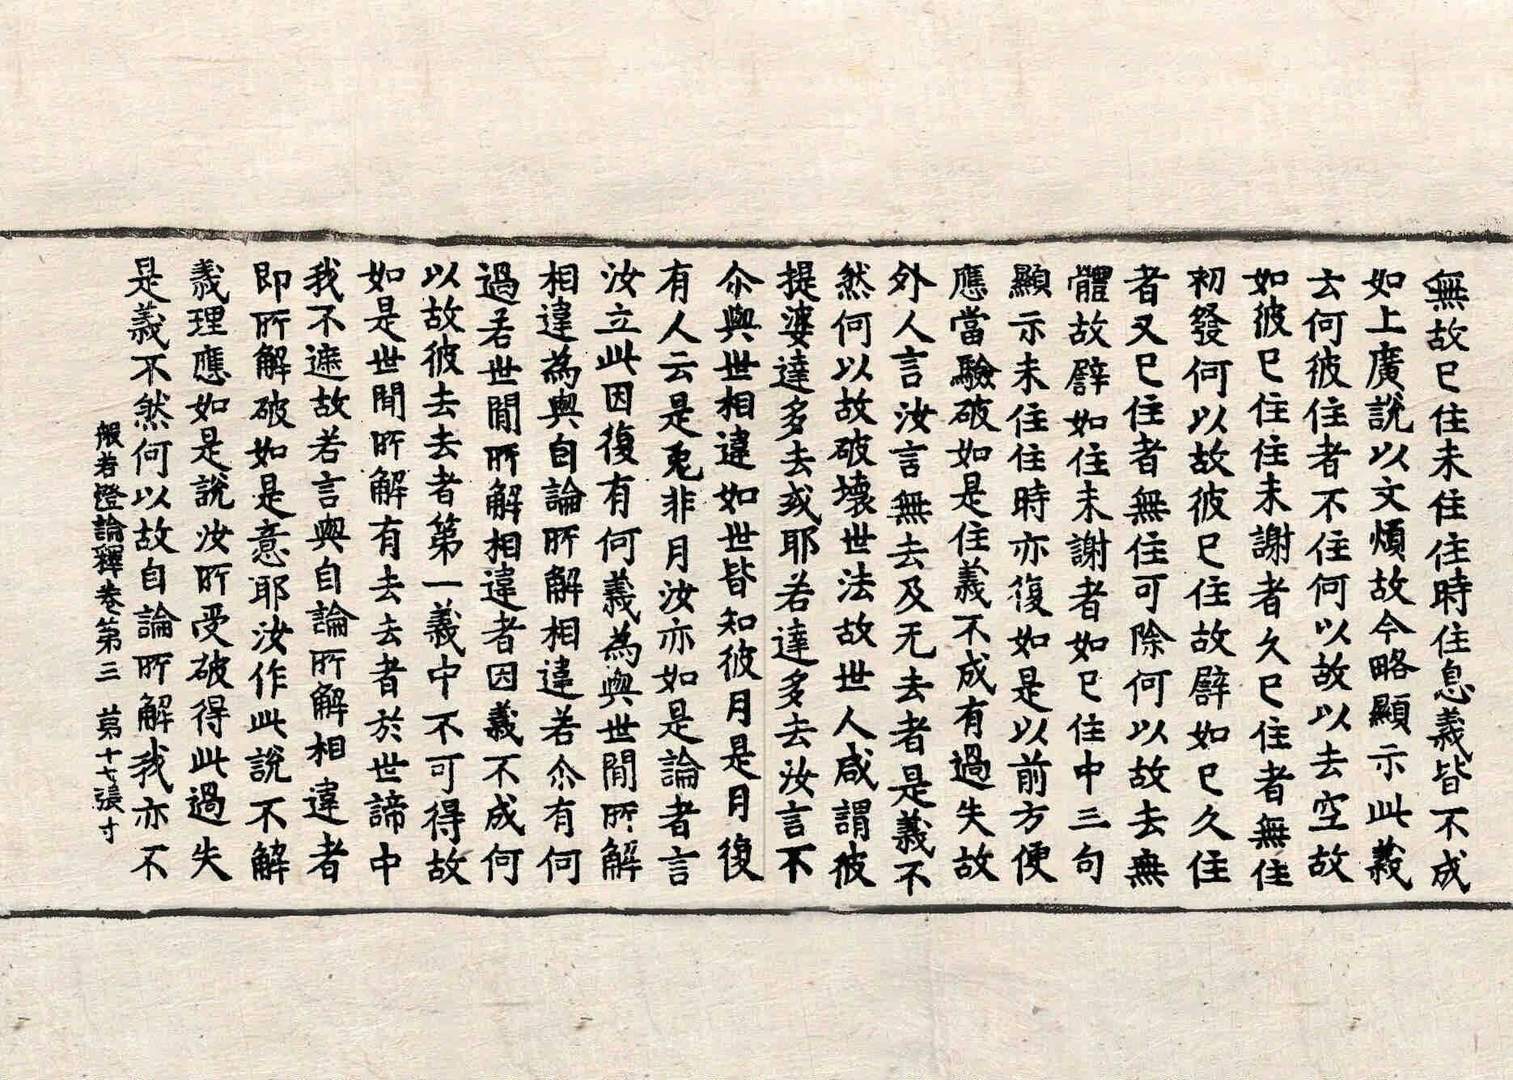 無故已住未住住時住息義皆不成
如上廣說以文煩故今略顯示此義
云何彼住者不住何以故以去空故
如彼已住住未謝者久已住者無住
初發何以故彼已住故譬如已久住
者又已住者無住可除何以故去無
體故譬如住未謝者如已住中三句
顯示未住住時亦復如是以前方便
應當驗破如是住義不成有過失故
外人言汝言無去及无去者是義不
然何以故破壞世法故世人咸謂彼
提婆達多去或耶若達多去汝言不
尒與世相違如世皆知彼月是月復
有人云是兎非月汝亦如是論者言
汝立此因復有何義為與世間所解
相違為與自論所解相違若尒有何
過若世間所解相違者因義不成何
以故彼去去者第一義中不可得故
如是世間所解有去去者於世諦中
我不遮故若言與自論所解相違者
即所解破如是意耶汝作此說不解
義理應如是說汝所受破得此過失
是義不然何以故自論所解我亦不
般若燈論釋卷第三 第十七張 寸